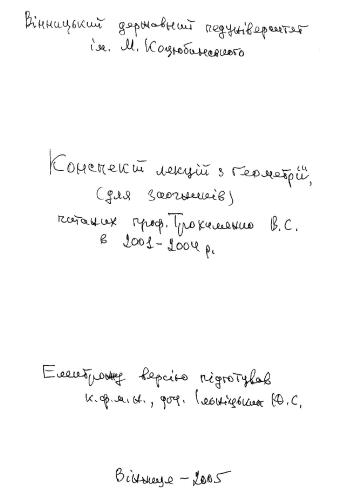 Вінницький державний педуніверситет
ім. М. Коцюбинського
Конспект лекцій з геометрії,
(для заочників)
читаних проф. Трохименко В.С.
в 2001-2004 р.
Електронну версію підготував
к.ф.м.н., доц.
Вінниця - 2005